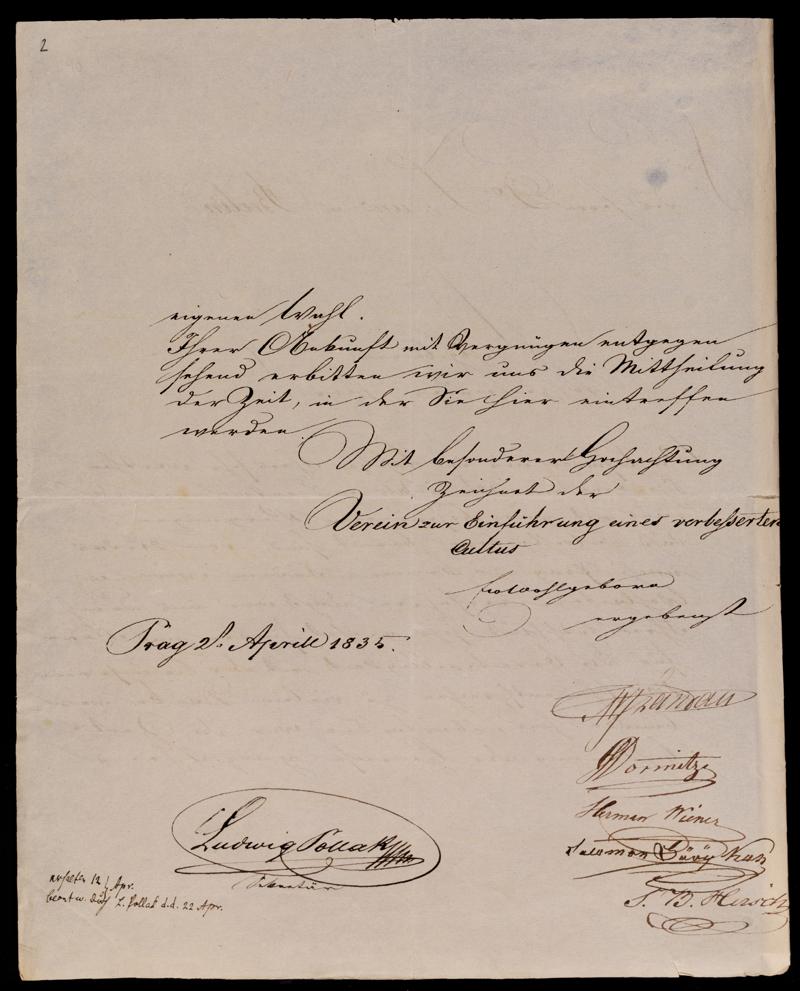 2
eigenen Wahl.
Ihrer Ankunft mit Vergnügen entgegen
sehend erbitten wir uns die Mittheilung
der Zeit, in der Sie hier eintreffen
werden.
Mit besonderer Hochachtung
zeichnet der
Verein zur Einführung eines verbesserten
Cultus
Euwohlgeborn
ergebenst
Prag 2t. Aprill 1835.
Landau
Dormitz
Herman Wiener
Ludwig Pollak
Salomon
S. B. Hirsch
Sekretär
erhalten 12 Apr.
beantw. durch L. Pollak d.d. 22 Apr.